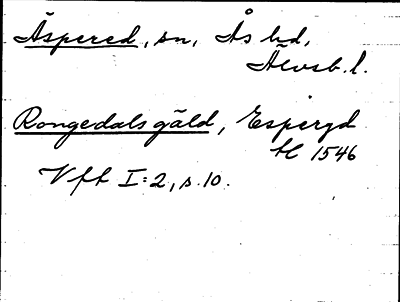 Äspered, sn, Ås hd,
Älvsb. l.
Rongedals gäld, Esperyd
HC 1546
Vft I:2, s. 10.